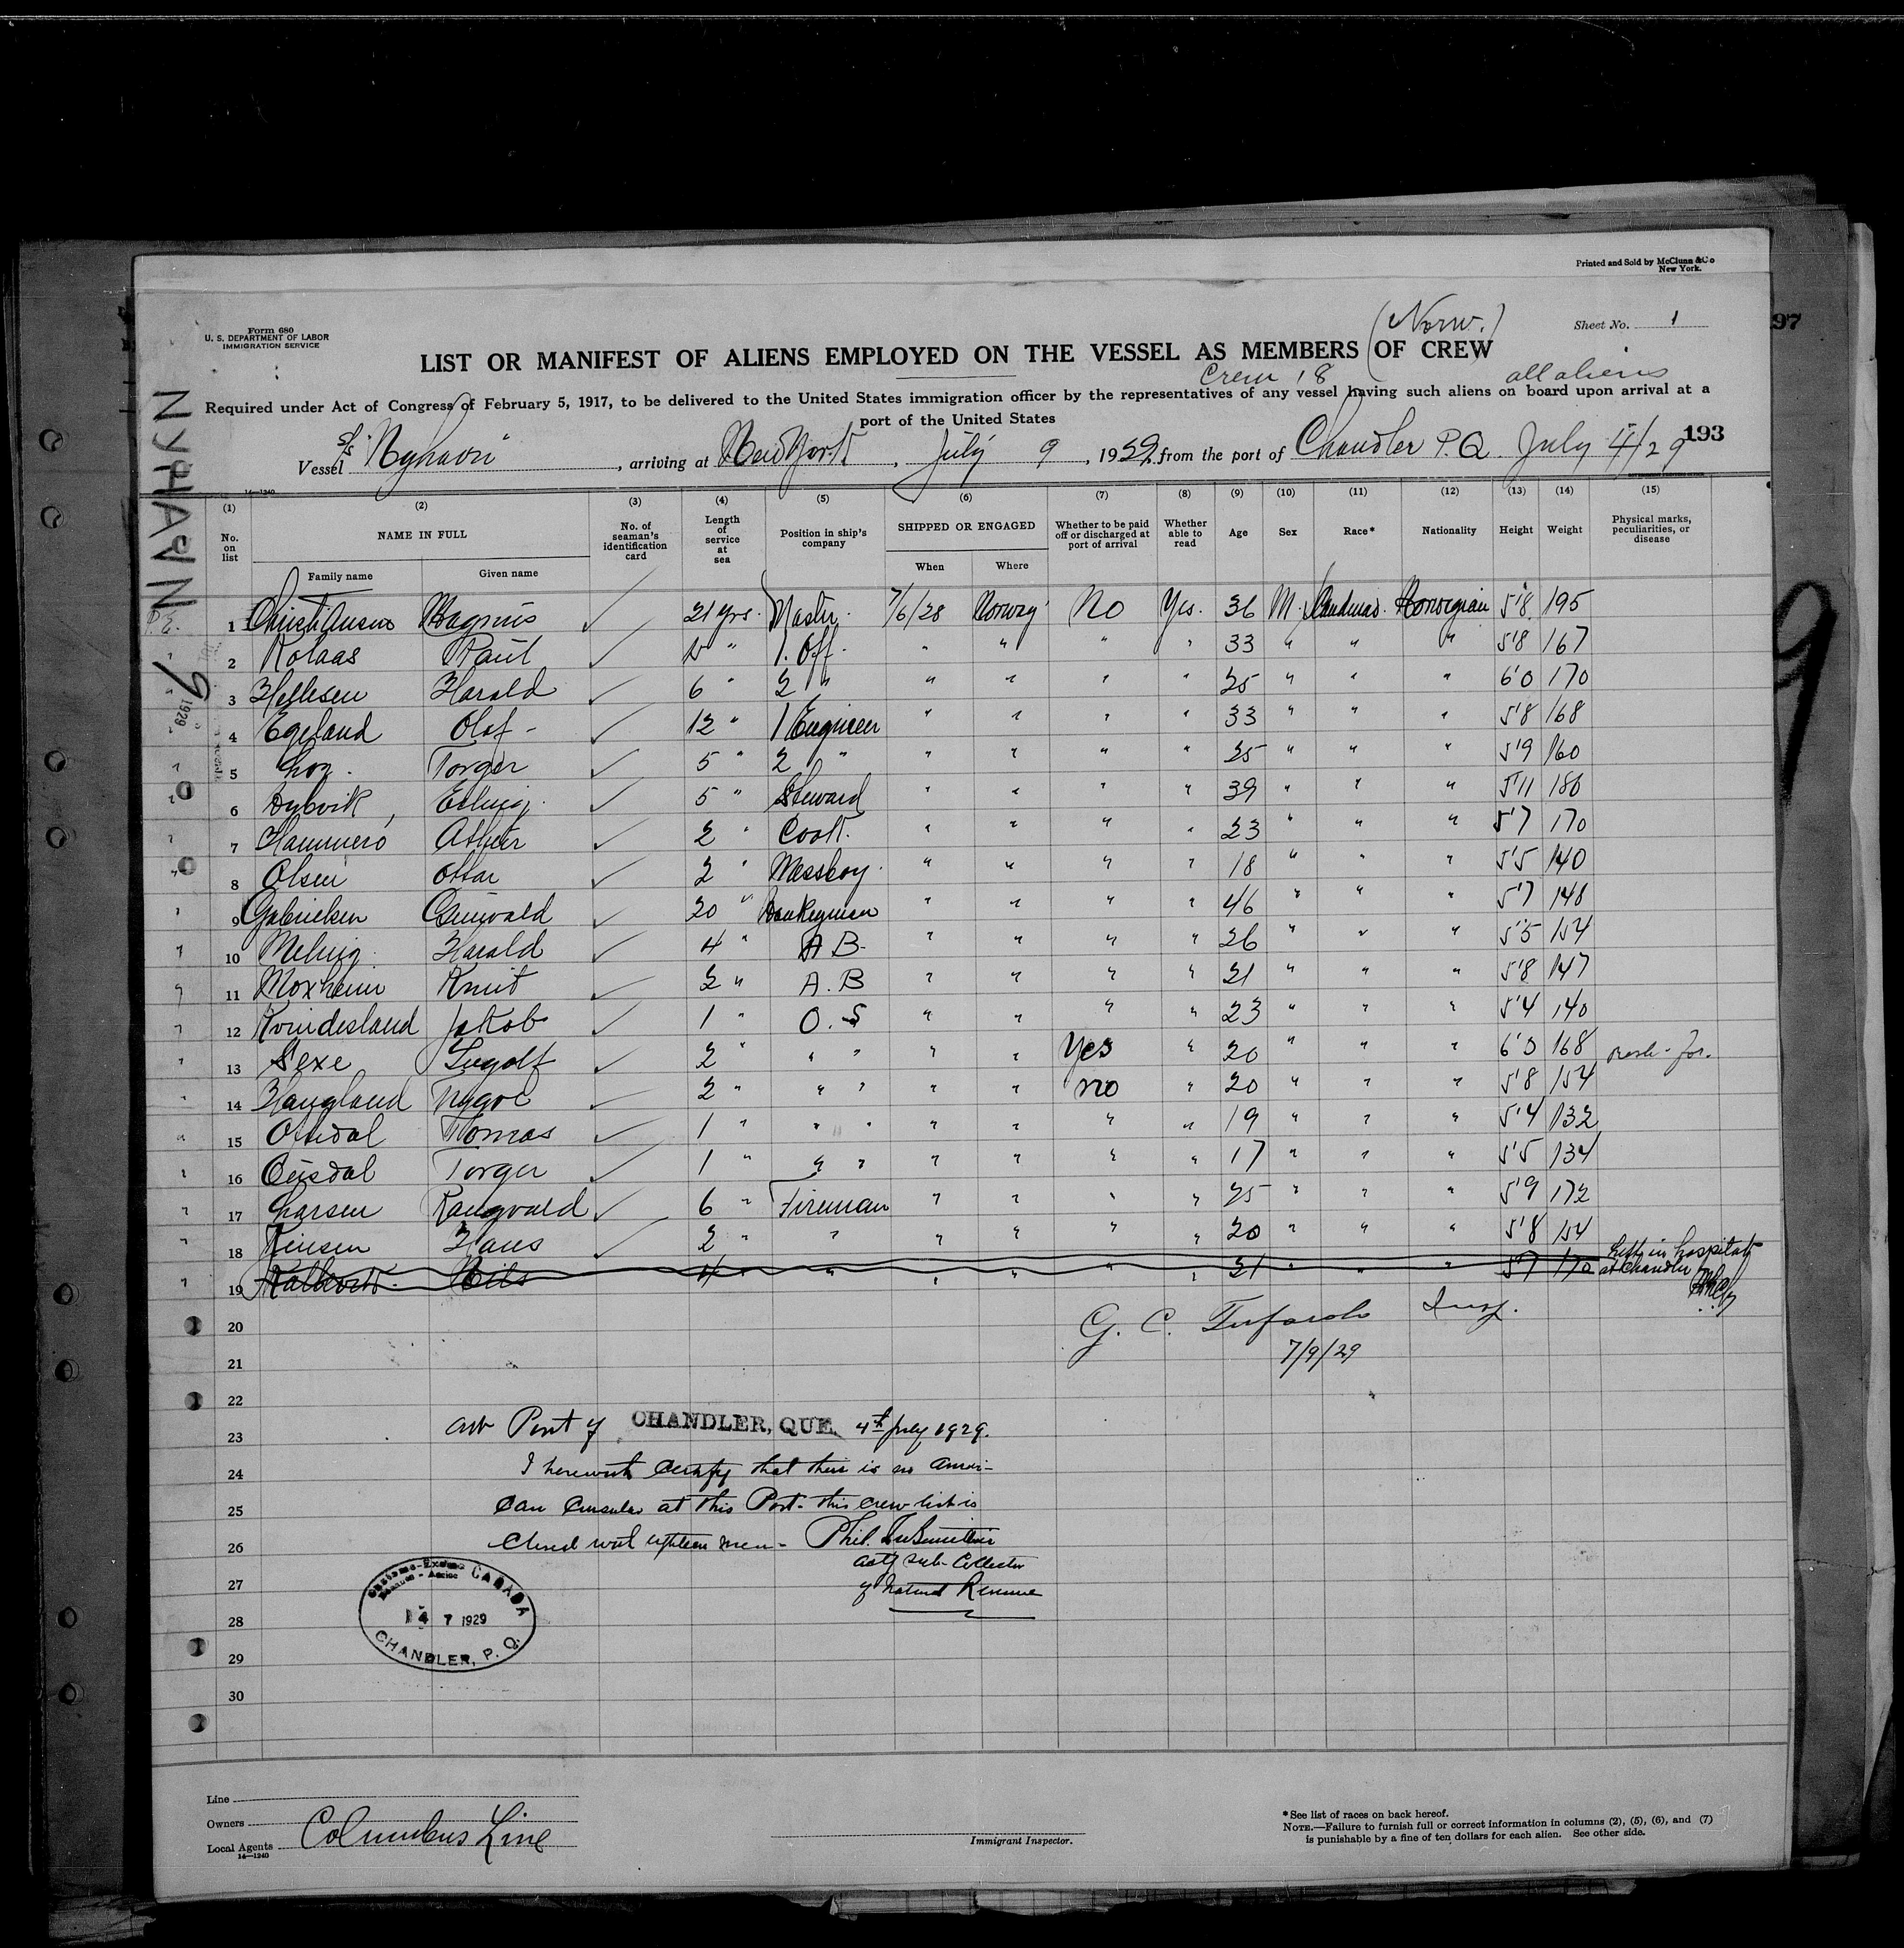 Printed and Sold by McClunn & Co
New York.
Form 680
U. S. DEPARTMENT OF LABOR
IMMIGRATION SERVICE
(Norw.)
Sheet No. 1
97
LIST OR MANIFEST OF ALIENS EMPLOYED ON THE VESSEL AS MEMBERS OF CREW
Crew 18 all aliens
Required under Act of Congress of February 5, 1917, to be delivered to the United States immigration officer by the representatives of any vessel having such aliens on board upon arrival at a
port of the United States
193
Vessel S/S "Nyhavn", arriving at New York, July 9, 1929, from the port of Chandler P.Q. July 4/29
14—1240
NYHAVN
9
1929
(1) (2) (3) (4) (5) (6) (7) (8) (9) (10) (11) (12) (13) (14) (15)
No. on list
NAME IN FULL
Family name Given name
No. of seaman's identification card
Length of service at sea
Position in ship's company
SHIPPED OR ENGAGED
When Where
Whether to be paid off or discharged at port of arrival
Whether able to read
Age Sex Race* Nationality Height Weight
Physical marks, peculiarities, or disease
1 Christiansen Magnus ✓ 21 yrs. Master. 7/6/28 Norway No Yes. 36 M. Scandinav. Norwegian 5'8 195
2 Kolaas Paul ✓ " 1. Off. " " " " 33 " " " 5'8 167
3 Hellesen Harald ✓ 6 " 2 " " " " " 25 " " " 6'0 170
4 Egeland Olaf - ✓ 12 " 1 Engineer " " " " 33 " " " 5'8 168
5 Torger ✓ 5 " 2 " " " " " 25 " " " 5'9 160
6 Dybvik, Erling. ✓ 5 " Steward " " " " 39 " " " 5'11 180
7 Hammerö ✓ 2 " Cook. " " " " 23 " " " 5'7 170
8 Olsen Ottar ✓ 2 " Messboy. " " " " 18 " " " 5'5 140
9 Gabrielsen ✓ 20 " Donkeyman " " " " 46 " " " 5'7 148
10 Melvig Harald ✓ 4 " A B. " " " " 26 " " " 5'5 154
11 Moxheim Knut ✓ 2 " A. B " " " " 21 " " " 5'8 147
12 Kvindesland Jakob ✓ 1 " O. S " " " " 23 " " " 5'4 140
13 Sexe Ingolf ✓ 2 " " " " " Yes " 20 " " " 6'0 168
14 Haugland Trygve ✓ 2 " " " " " no " 20 " " " 5'8 154
15 Tomas ✓ 1 " " " " " " " 19 " " " 5'4 132
16 Ousdal Torger ✓ 1 " " " " " " " 17 " " " 5'5 134
17 Larsen Rangvald ✓ 6 " Fireman " " " " 25 " " " 5'9 172
18 Hans ✓ 2 " " " " " " 20 " " " 5'8 154
19 Nils 4 " " " " " " 21 " " " 5'7 170 Left in hospital
at Chandler
20 G. C. Tufarolo Insp.
21 7/9/29
22
23 Port of CHANDLER, QUE. 4th July 1929.
24 I herewith certify that there is no Ameri-
25 can Consular at this Port. this crew list is
26 closed with eighteen men - Phil.
actg sub-Collector
27 of National Revenue
28
29
30
CANADA
4 7 1929
CHANDLER, P. Q.
Line
Owners
Local Agents Columbus Line
14—1240
Immigrant Inspector.
*See list of races on back hereof.
NOTE.—Failure to furnish full or correct information in columns (2), (5), (6), and (7)
is punishable by a fine of ten dollars for each alien. See other side.